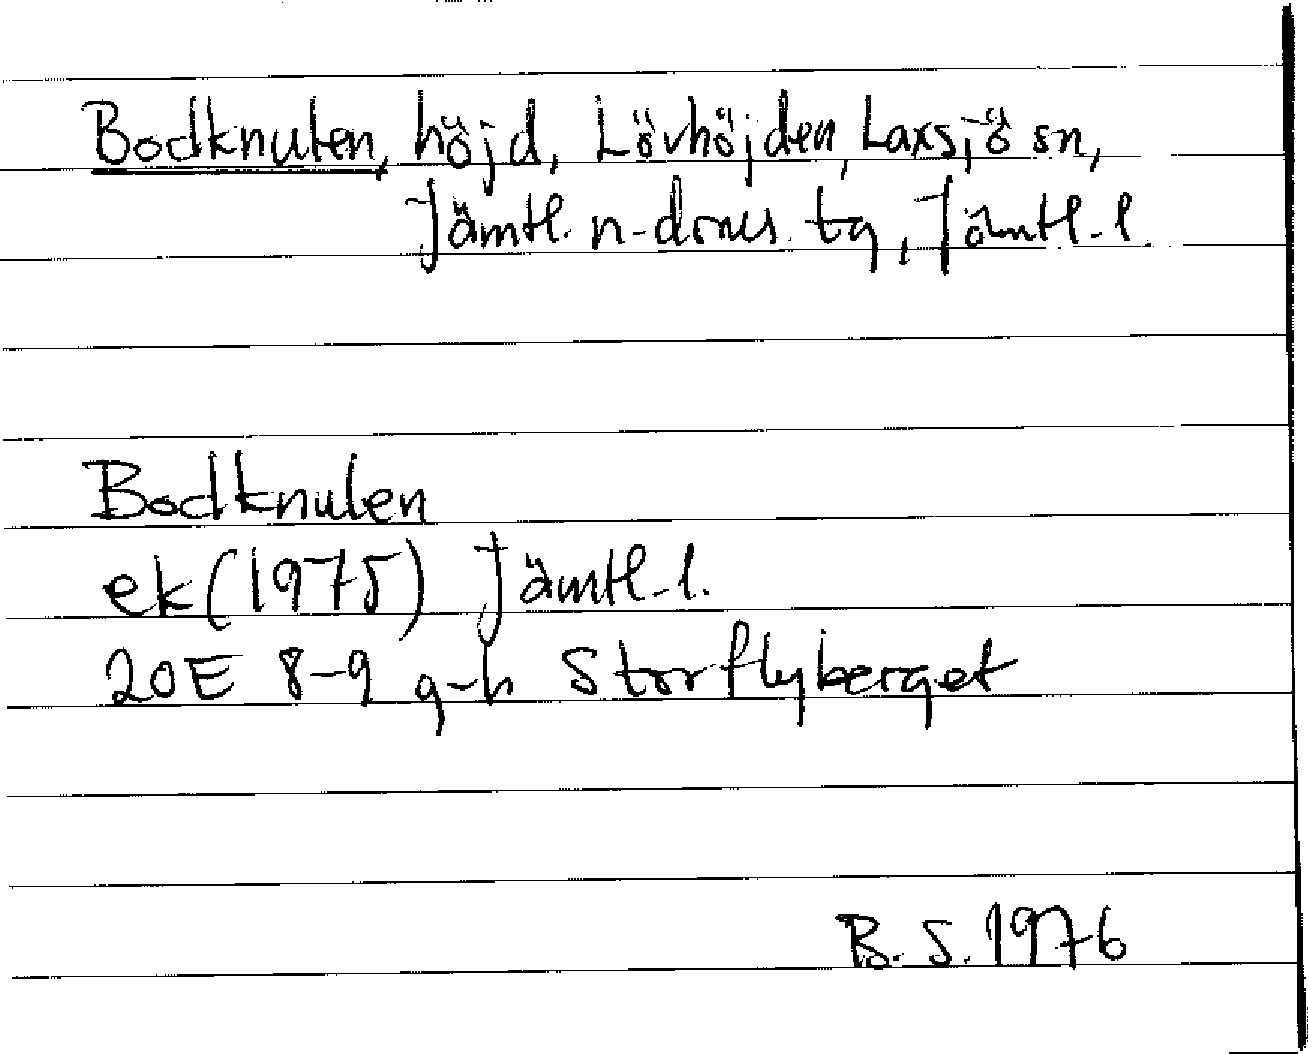 Bodknulen, höjd, Lövhöjden, Laxsjö sn,
Jämtl. n-dras tg, Jämtl-l.
Bodknulen
ek (1975) Jämtl-l.
20E 8-9 g-h Storflyberget
B. S. 1976